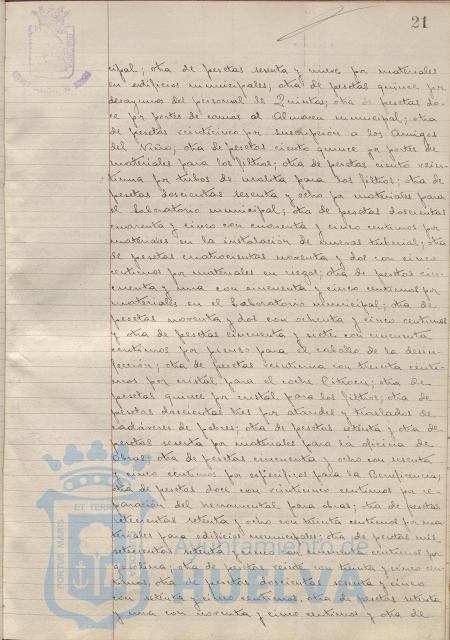 21
cipal; otra de pesetas sesenta y nueve por materiales
en edificios municipales; otra de pesetas quince por
desayunos del personal de Quintas; otra de pesetas do-
ce por portes de camas al Almacen municipal; otra
de pesetas veinticinco por suscripción a los Amigos
del Niño; otra de pesetas ciento quince por portes de
materiales para los filtros; otra de pesetas ciento vein-
tiuna por tubos de uralita para los filtros; otra de
pesetas doscientas sesenta y ocho por materiales para
el Laboratorio municipal; otra de pesetas doscientas
cuarenta y cinco con cuarenta y cinco centimos por
materiales en la instalacion de nuevas tuberias; otra
de pesetas cuatrocientas noventa y dos con cinco
centimos por materiales en riegos; otra de pesetas cin-
cuenta y una con cincuenta y cinco centimos por
materiales en el Laboratorio municipal; otra de
pesetas noventa y dos con ochenta y cinco centimos
y otra de pesetas cincuenta y siete con cincuenta
centimos por pienso para el caballo de la desin-
fección; otra de pesetas veintiuna con treinta centi-
mos por cristal para el coche Citroen; otra de
pesetas quince por cristal para los filtros; otra de
pesetas doscientas tres por ataudes y traslados de
cadáveres de pobres; otra de pesetas setenta y otra de
pesetas sesenta por materiales para la oficina de
Obras; otra de pesetas cincuenta y ocho con sesenta
y cinco centimos por especificos para la Beneficencia;
otra de pesetas doce con veintiuno centimos por re-
paracion del herramental para obras; otra de pesetas
setecientas setenta y ocho con treinta centimos por ma-
teriales para edificios municipales; otra de pesetas mil
setecientas setenta y una con centimos por
gasolina; otra de pesetas veinte con treinta y cinco cen-
timos, otra de pesetas doscientas sesenta y cinco
con setenta y cinco centimos, otra de pesetas setenta
y una con noventa y cinco centimos y otra de
Ayuntamiento de
HUELVA
PORTUS MARIS
ET TERRAE